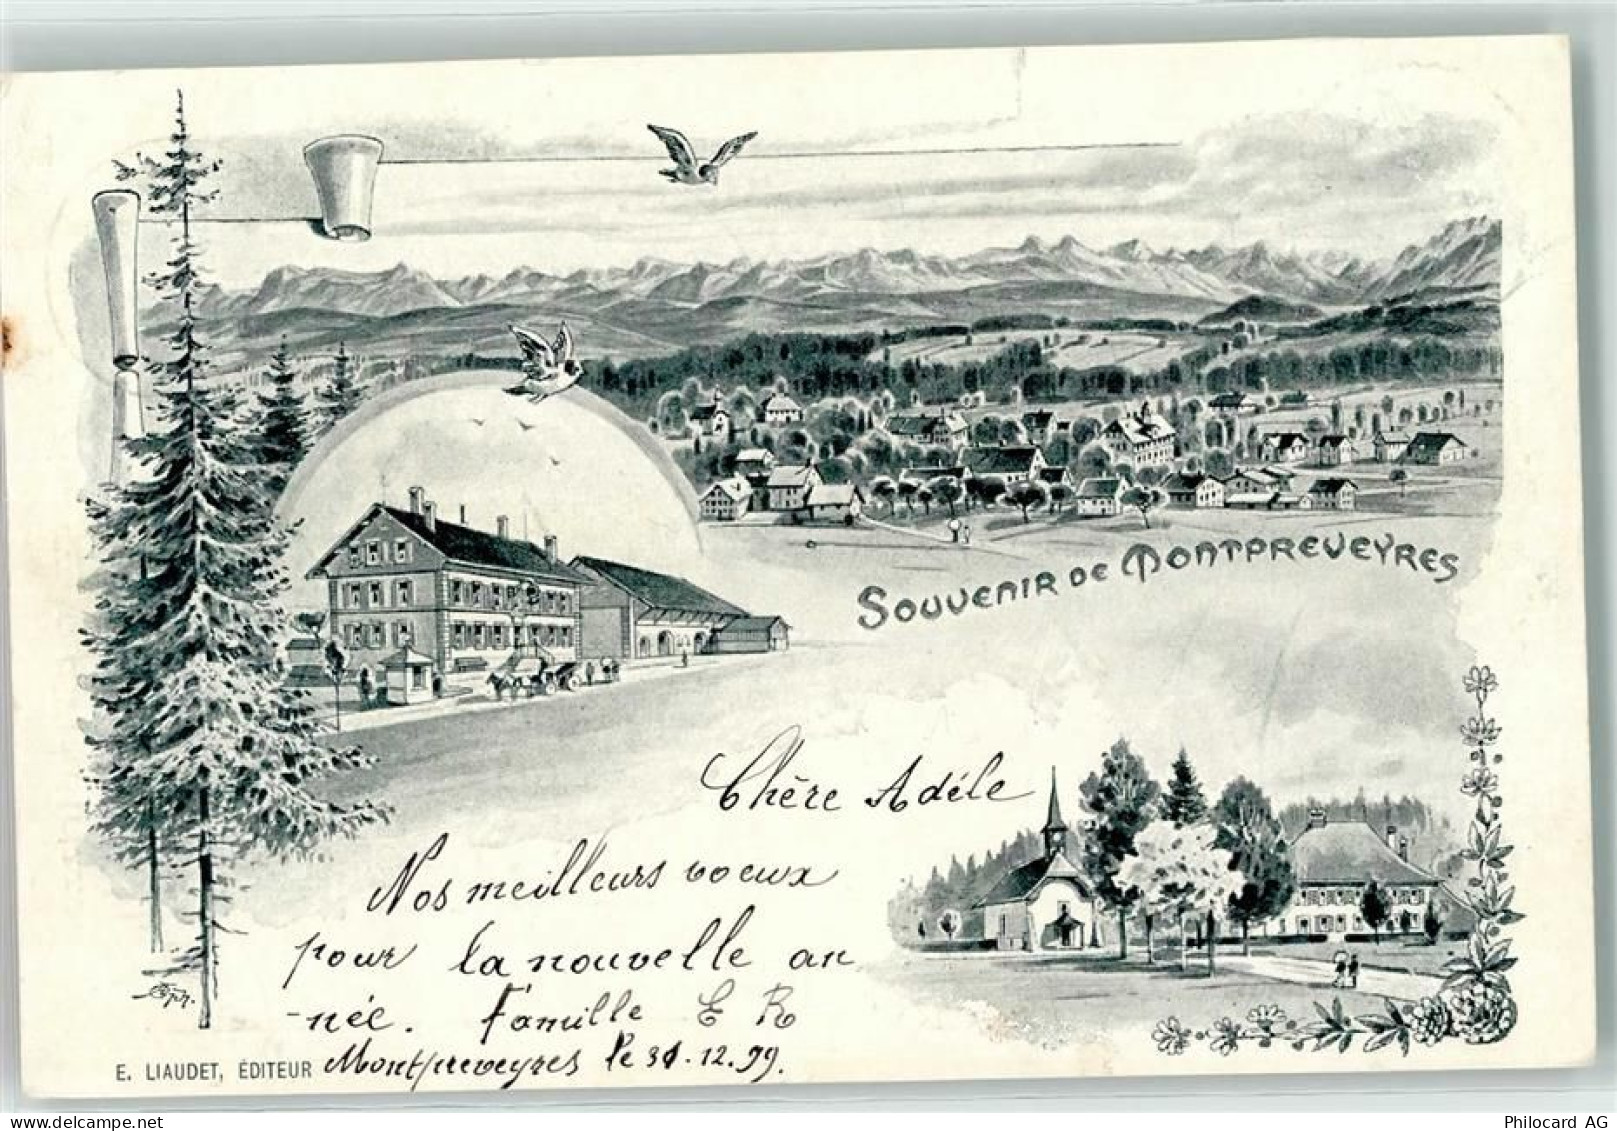 Souvenir de Montpreveyres
Chère Adéle
Nos meilleurs voeux
pour la nouvelle an
-née. Famille E R
Montpreveyres le 31.12.99.
E. LIAUDET, ÉDITEUR
Philocard AG